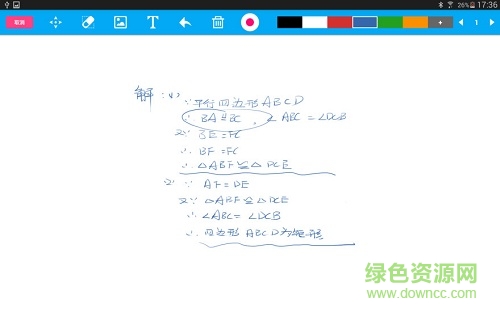 26% 17:36
取消 T 1
解: (1)
∵ 平行四边形ABCD
∴ BA∥DC, ∠ABC=∠DCB
又∵ BE=FC
∴ BF=FC
∴ △ABF≌△DCE
(2) ∵ AF=DE
又∵ △ABF≌△DCE
∴ ∠ABC=∠DCB
∴ 四边形ABCD为矩形
绿色资源网
www.downcc.com